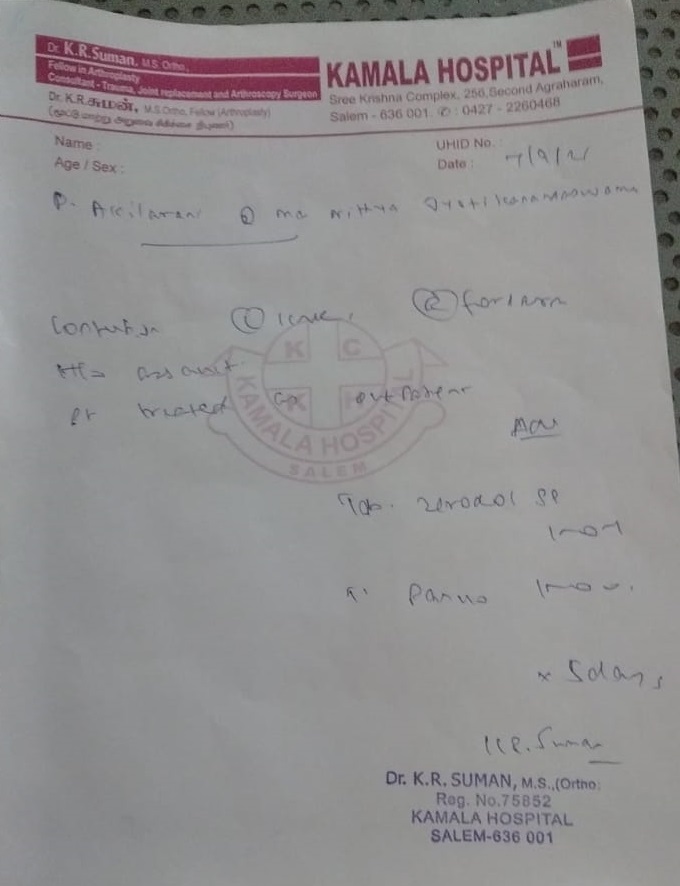 Dr. K.R.Suman, M.S. Ortho.,
Fellow in Arthroplasty
Consultant - Trauma, Joint replacement and Arthroscopy Surgeon
Dr. K.R.சுமன், M.S.Ortho, Fellow (Arthroplasty)
KAMALA HOSPITAL™
Sree Krishna Complex, 256, Second Agraharam,
Salem - 636 001. ✆ : 0427 - 2260468
Name :
Age / Sex :
UHID No. :
Date : 7/9/21
P.
Contusion (L) knee, (R) forearm
H/o assault
Pt treated as outpatient
Adv
Tab. Zerodol SP
1-0-1
T. 1-0-0.
x 5days
K C
K H
KAMALA HOSPITAL
SALEM
K.R. Suman
Dr. K.R. SUMAN, M.S.,(Ortho)
Reg. No.75852
KAMALA HOSPITAL
SALEM-636 001